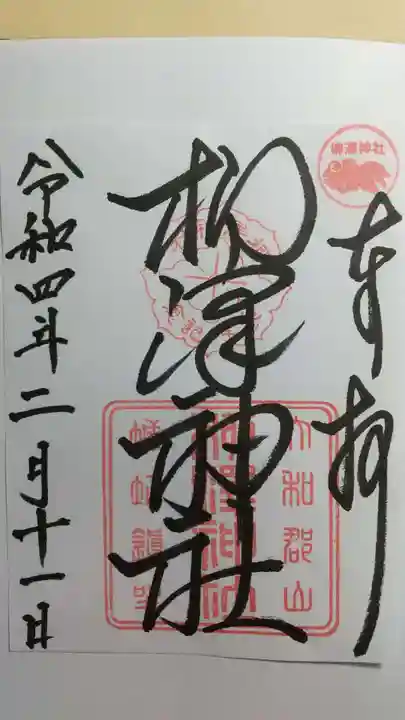 柳澤神社
奉拝
柳澤神社
大和郡山
柳澤神社
令和四年二月十一日